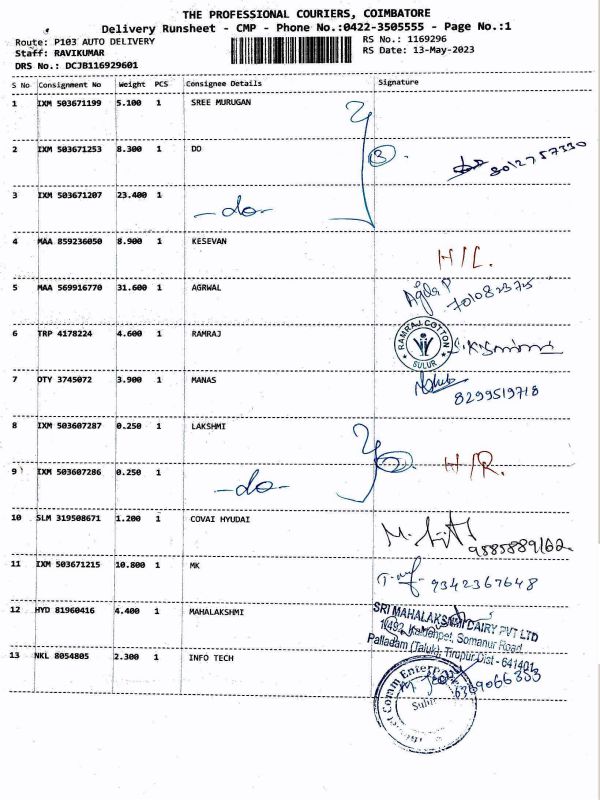 THE PROFESSIONAL COURIERS, COIMBATORE
Delivery Runsheet - CMP - Phone No.:0422-3505555 - Page No.:1
Route: P103 AUTO DELIVERY RS No.: 1169296
Staff: RAVIKUMAR RS Date: 13-May-2023
DRS No.: DCJB116929601
S No Consignment No Weight PCS Consignee Details Signature
1 IXM 503671199 5.100 1 SREE MURUGAN
2 IXM 503671253 8.300 1 DO 3 8012757330
3 IXM 503671207 23.400 1 -do-
4 MAA 859236050 8.900 1 KESEVAN H/L.
5 MAA 569916770 31.600 1 AGRWAL
6 TRP 4178224 4.600 1 RAMRAJ RAMRAJ COTTON SULUR
7 OTY 3745072 3.900 1 MANAS 8299519718
8 IXM 503607287 0.250 1 LAKSHMI
9 IXM 503607286 0.250 1 -do- 2 H/R.
10 SLM 319508671 1.200 1 COVAI HYUDAI
11 IXM 503671215 10.800 1 MK 9342367648
12 HYD 81960416 4.400 1 MAHALAKSHMI
SRI MAHALAKSHMI DAIRY PVT LTD
Somanur Road,
Palladam (Taluk), Tirupur Dist - 641401
13 NKL 8054805 2.300 1 INFO TECH 6369066353
Comm Enter
Sulur